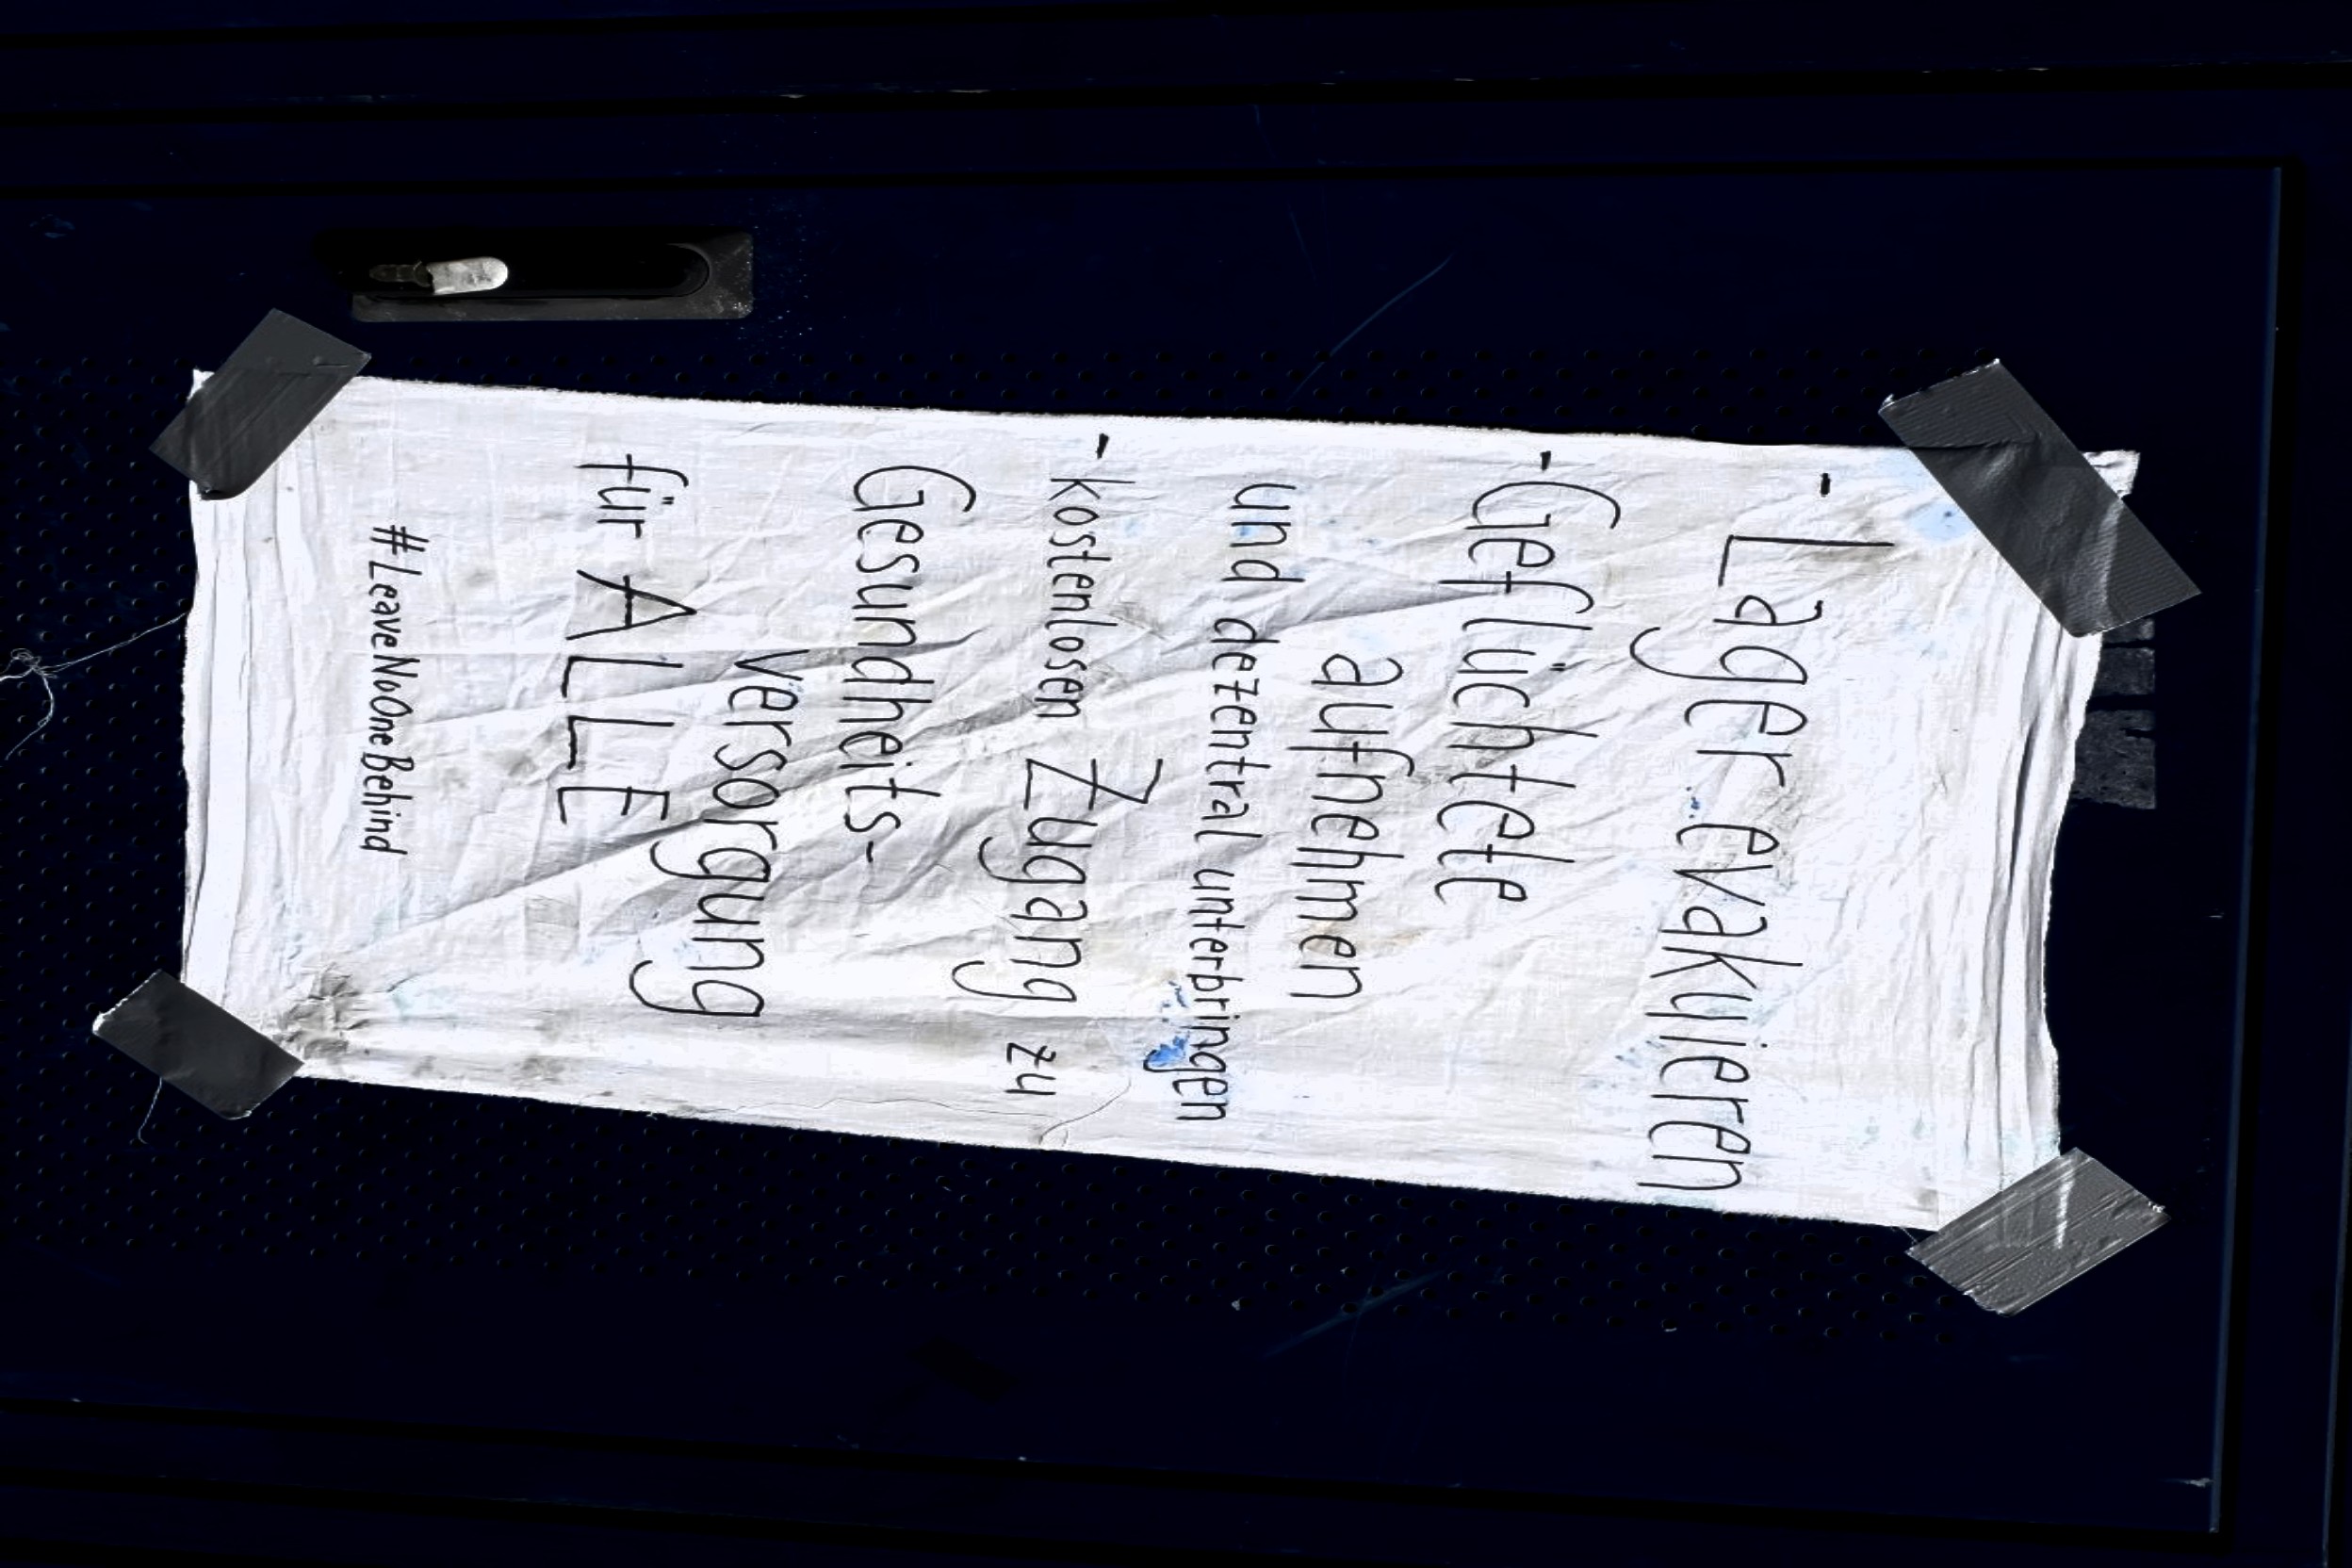 - Lager evakuieren
- Geflüchtete
aufnehmen
und dezentral unterbringen
- kostenlosen Zugang zu
Gesundheits-
versorgung
für ALLE
#LeaveNoOneBehind